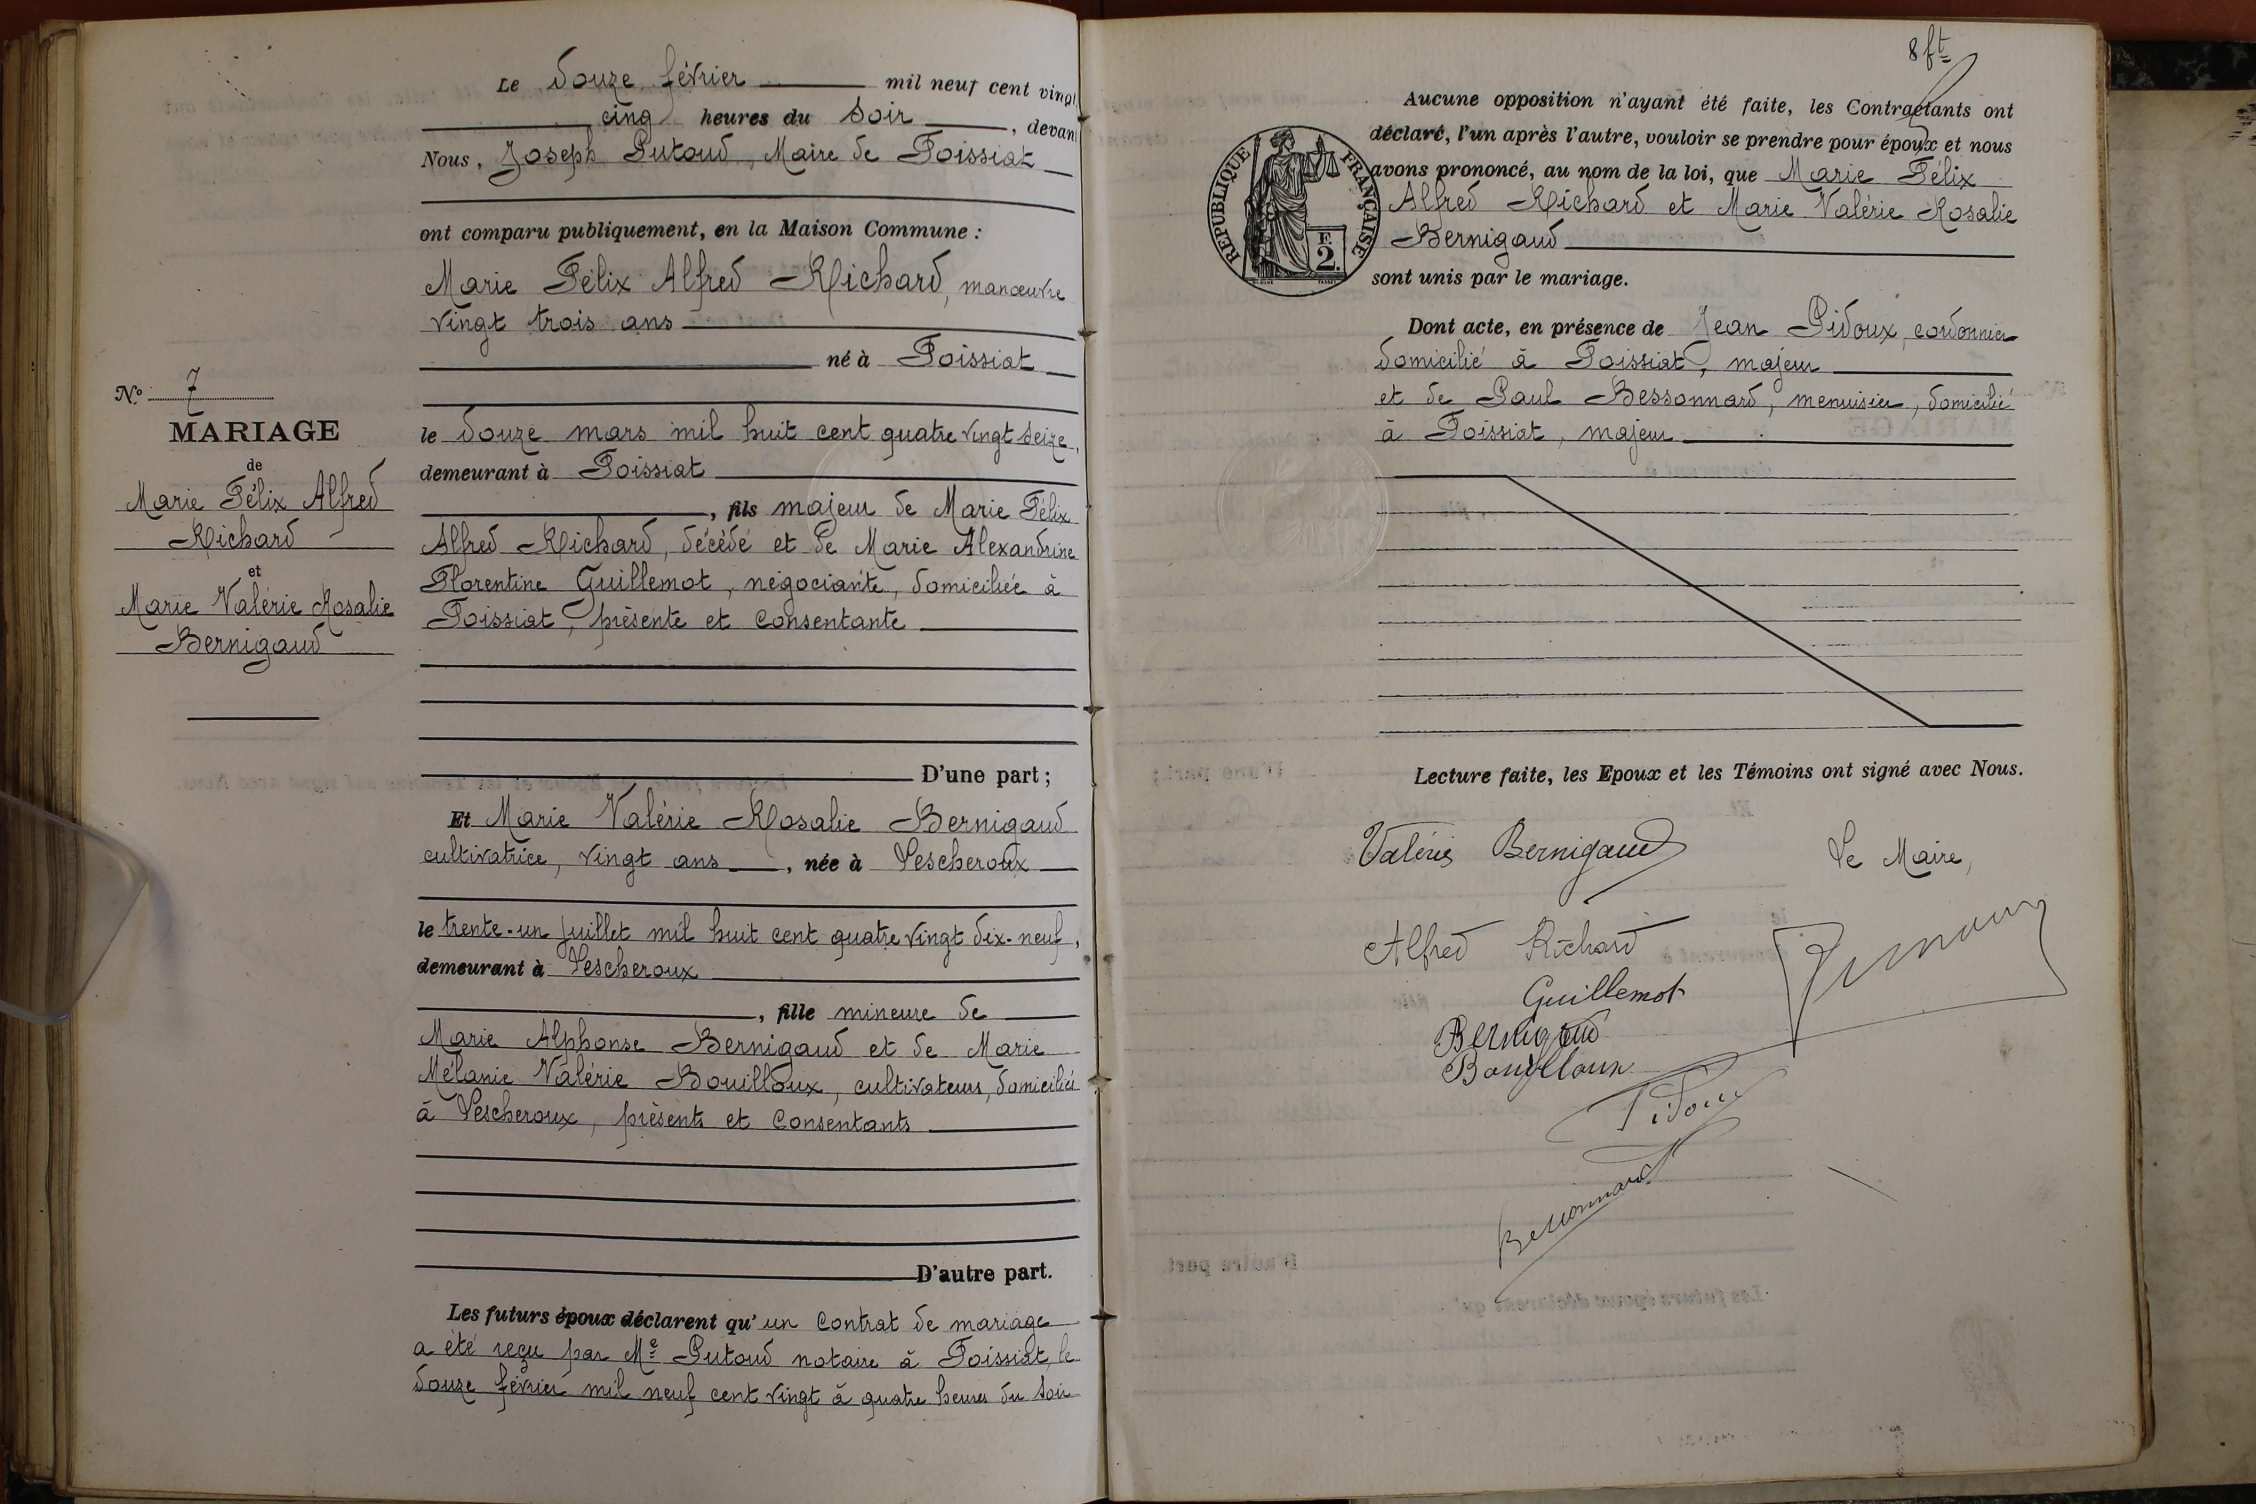 Le douze février mil neuf cent vingt
cinq heures du soir, devant
Nous, Joseph Putoud, Maire de Foissiat
ont comparu publiquement, en la Maison Commune :
Marie Félix Alfred Richard, manœuvre
vingt trois ans
né à Foissiat
No 7
MARIAGE
de
Marie Félix Alfred
Richard
et
Marie Valérie Rosalie
Bernigaud
le douze mars mil huit cent quatre vingt seize,
demeurant à Foissiat
, fils majeur de Marie Félix
Alfred Richard, décédé et de Marie Alexandrine
Florentine Guillemot, négociante, domiciliée à
Foissiat, présente et consentante
D'une part ;
Et Marie Valérie Rosalie Bernigaud
cultivatrice, vingt ans, née à Lescheroux
le trente-un juillet mil huit cent quatre vingt dix-neuf,
demeurant à Lescheroux
, fille mineure de
Marie Alphonse Bernigaud et de Marie
Mélanie Valérie Bouilloux, cultivateurs, domiciliés
à Lescheroux, présents et consentants
D'autre part.
Les futurs époux déclarent qu'un contrat de mariage
a été reçu par Me Putoud notaire à Foissiat, le
douze février mil neuf cent vingt à quatre heures du soir
8 ft
Aucune opposition n'ayant été faite, les Contractants ont
déclaré, l'un après l'autre, vouloir se prendre pour époux et nous
avons prononcé, au nom de la loi, que Marie Félix
Alfred Richard et Marie Valérie Rosalie
Bernigaud
sont unis par le mariage.
REPUBLIQUE FRANÇAISE
E
2
Dont acte, en présence de Jean Pidoux, cordonnier
domicilié à Foissiat, majeur
et de Paul Bessonnard, menuisier, domicilié
à Foissiat, majeur
Lecture faite, les Epoux et les Témoins ont signé avec Nous.
Valérie Bernigaud
Le Maire,
Alfred Richard
Guillemot
Bernigaud
Bouilloux
Pidoux
Bessonnard